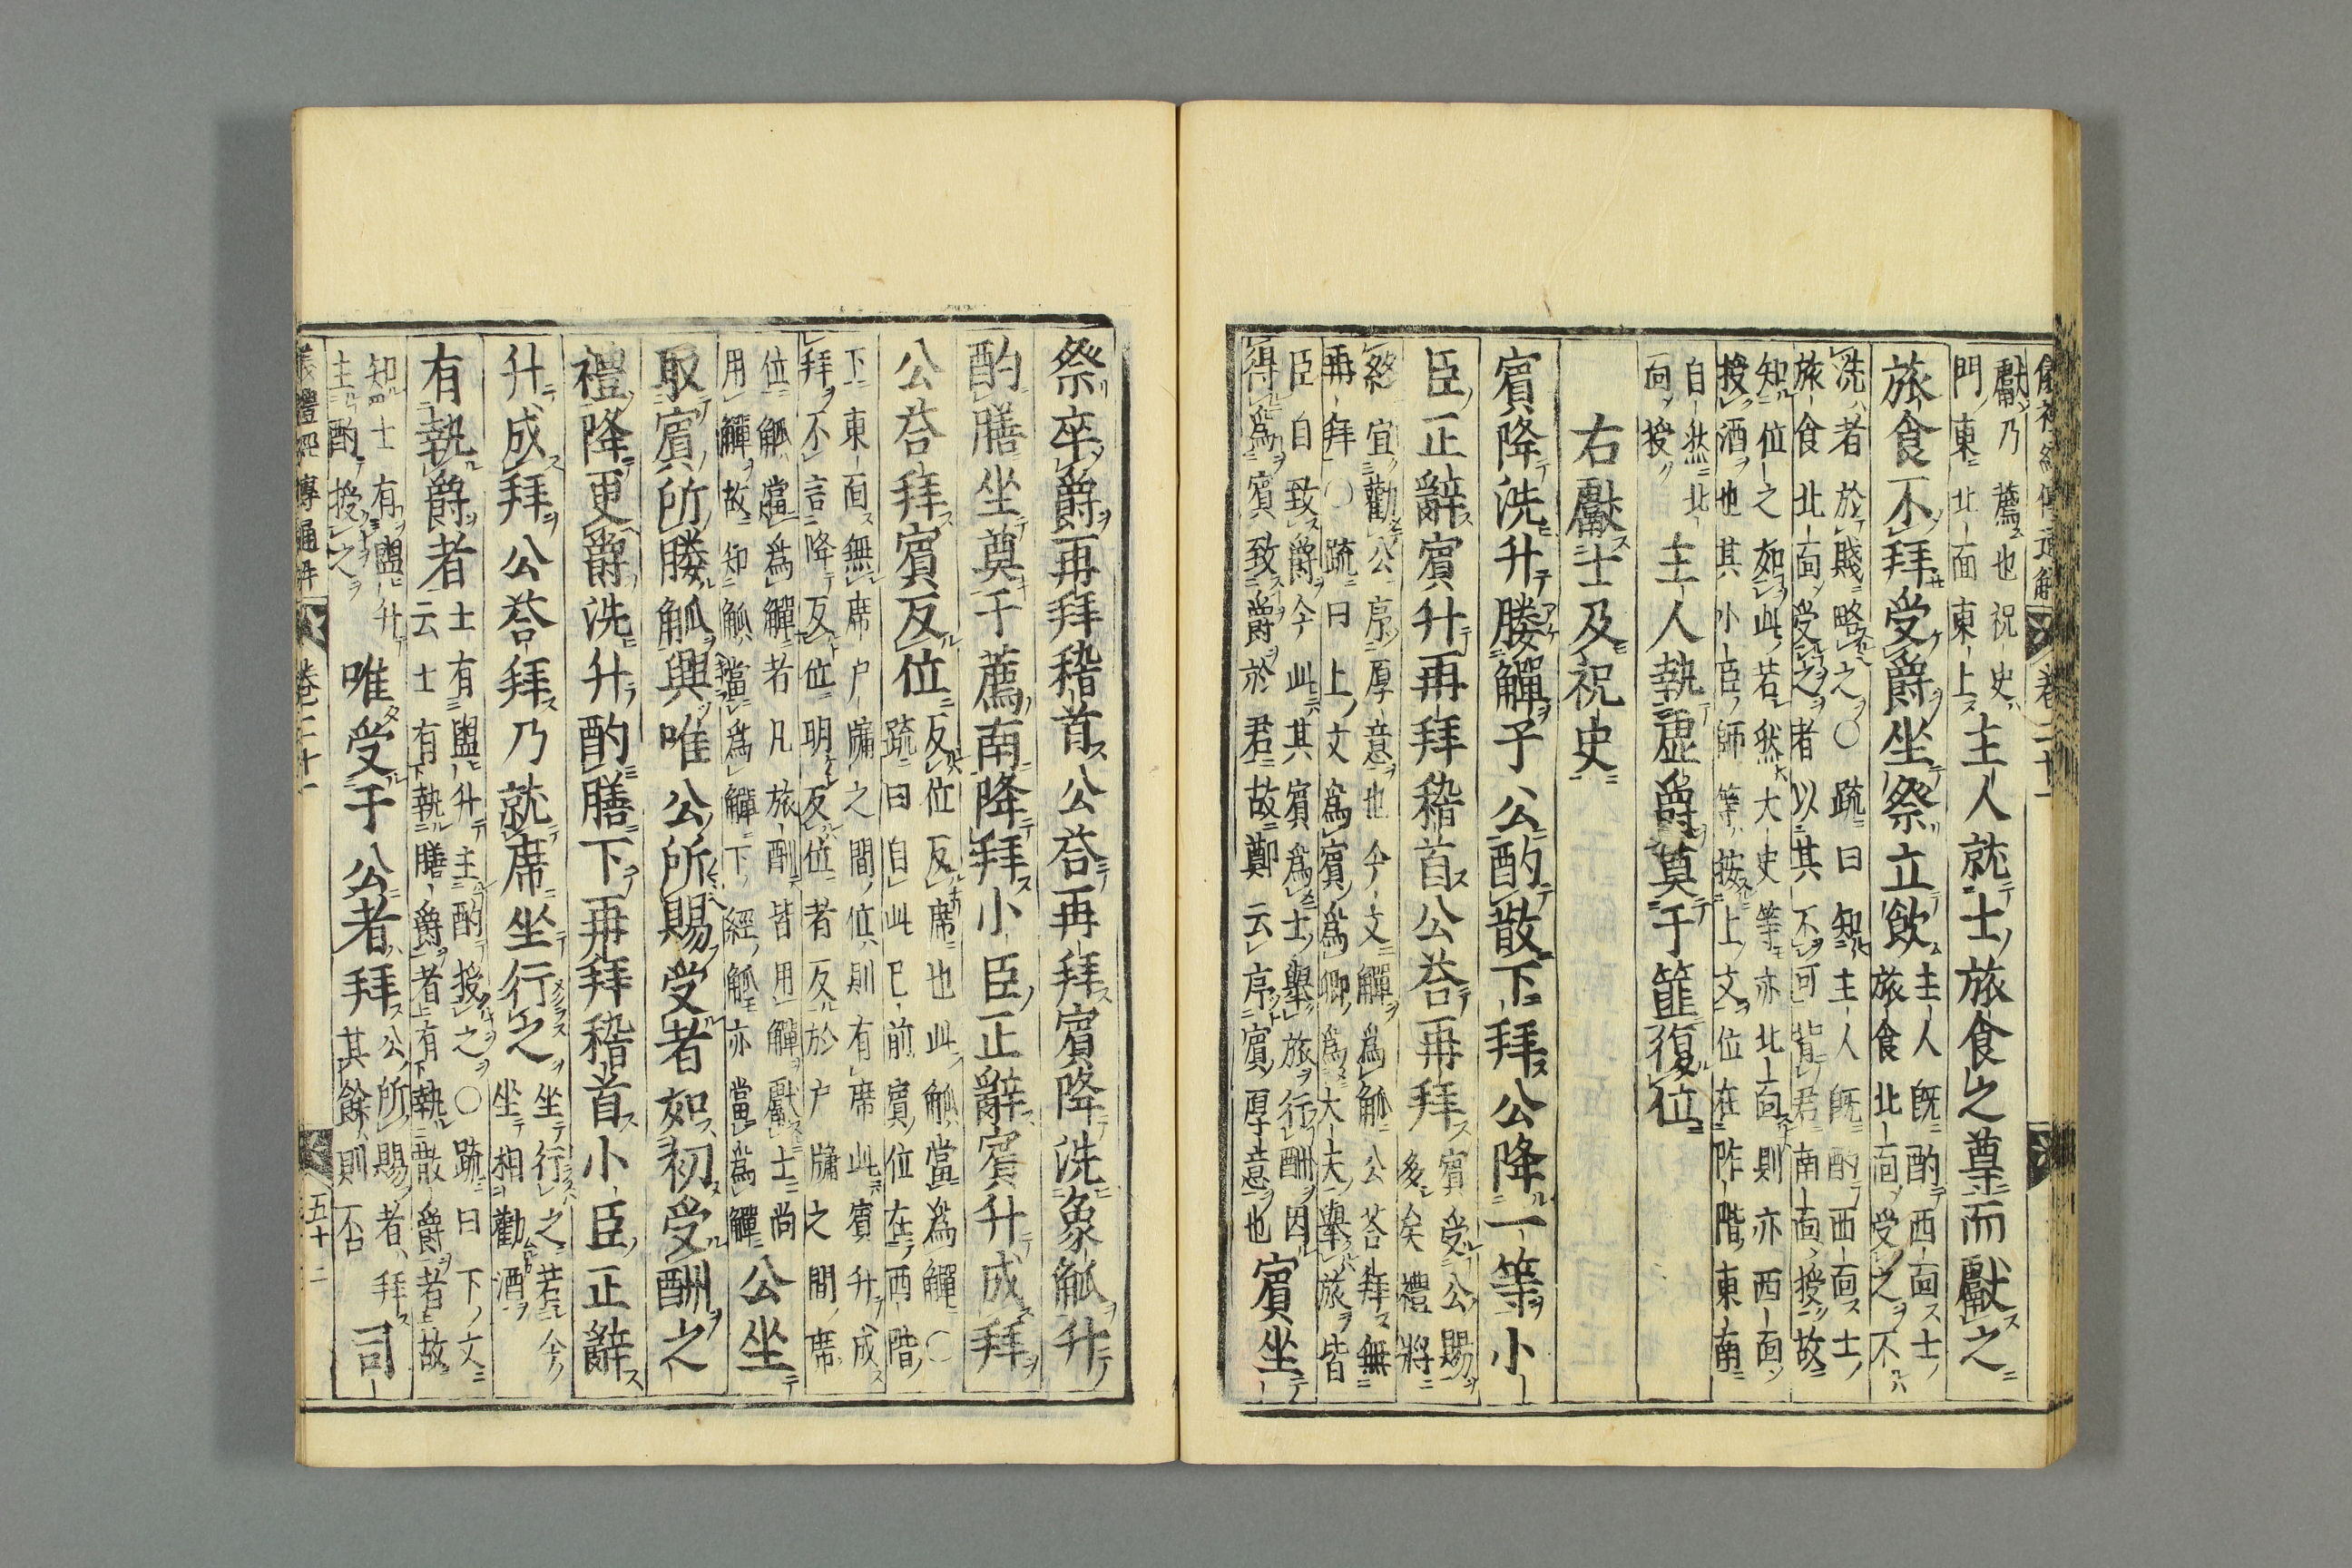 儀禮經傳通解　卷二十一
獻乃薦也祝史門東北面東上主人就士旅食之尊而獻之
旅食不拜受爵坐祭立飲主人既酌西面士旅食北面受之不
洗者於賤略之○疏曰知主人既酌西面士旅食北面受之者以其不可背君南面授故
知位之如此若然大史等亦北面則亦西面授酒也其小臣師等按上文位在阼階東南
自然北面授主人執虛爵奠于篚復位
右獻士及祝史
賓降洗升媵觶于公酌散下拜公降一等小
臣正辭賓升再拜稽首公荅再拜賓受公賜多矣禮將
終宜勸公序厚意也今文觶爲觚公荅拜無再拜○疏曰上文爲賓爲卿爲大夫舉旅皆
臣自致爵今此其賓爲士舉旅行酬因得爲賓致爵於君故鄭云序賓厚意也賓坐
祭卒爵再拜稽首公荅再拜賓降洗象觚升
酌膳坐奠于薦南降拜小臣正辭賓升成拜
公荅拜賓反位反位反席也此觚當爲觶○疏曰自此已前賓位在西階
下東面無席戶牖之間位則有席此賓升成拜不言降反位明反位者反於戶牖之間席
位觚當爲觶者凡旅酬皆用觶獻士尚用觶故知觚當爲觶下經觚亦當爲觶公坐
取賓所媵觚興唯公所賜受者如初受酬之
禮降更爵洗升酌膳下再拜稽首小臣正辭
升成拜公荅拜乃就席坐行之坐行之若今坐相勸酒
有執爵者士有盥升主酌授之○疏曰下文云士有執膳爵者有執散爵者故
知士有盥升主酌授之唯受于公者拜公所賜者拜其餘則否司
儀禮經傳通解　卷二十一　五十二